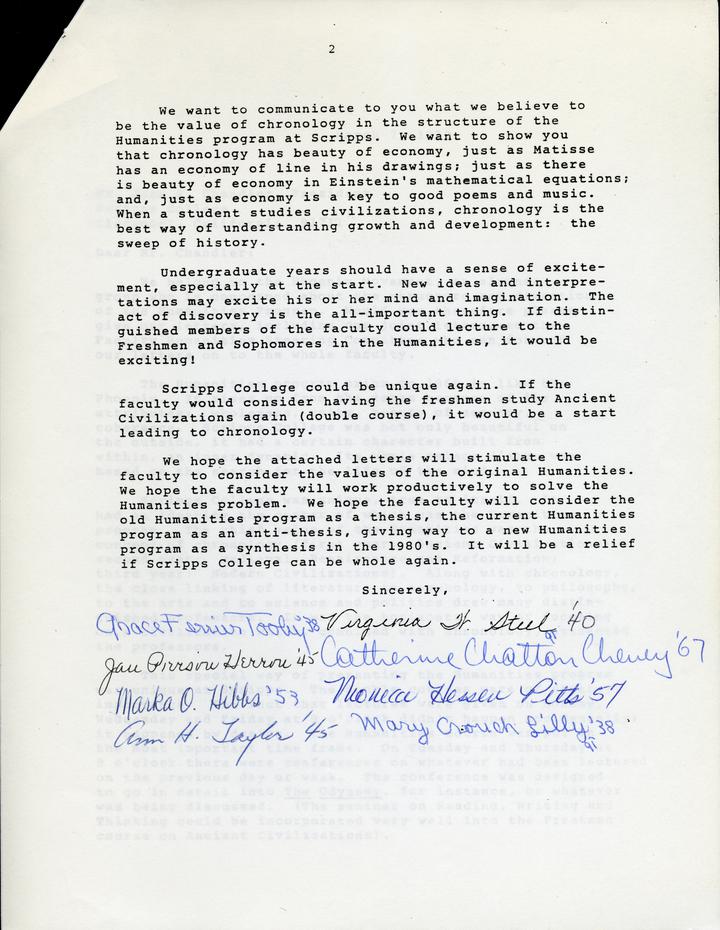 2
We want to communicate to you what we believe to
be the value of chronology in the structure of the
Humanities program at Scripps. We want to show you
that chronology has beauty of economy, just as Matisse
has an economy of line in his drawings; just as there
is beauty of economy in Einstein's mathematical equations;
and, just as economy is a key to good poems and music.
When a student studies civilizations, chronology is the
best way of understanding growth and development: the
sweep of history.
Undergraduate years should have a sense of excite-
ment, especially at the start. New ideas and interpre-
tations may excite his or her mind and imagination. The
act of discovery is the all-important thing. If distin-
guished members of the faculty could lecture to the
Freshmen and Sophomores in the Humanities, it would be
exciting!
Scripps College could be unique again. If the
faculty would consider having the freshmen study Ancient
Civilizations again (double course), it would be a start
leading to chronology.
We hope the attached letters will stimulate the
faculty to consider the values of the original Humanities.
We hope the faculty will work productively to solve the
Humanities problem. We hope the faculty will consider the
old Humanities program as a thesis, the current Humanities
program as an anti-thesis, giving way to a new Humanities
program as a synthesis in the 1980's. It will be a relief
if Scripps College can be whole again.
Sincerely,
Grace Ferrier Tooby '38 Virginia H. Steel '40
Jan Pirrson Herron '45 Catherine Chatton Cheney '67
Marka O. Hibbs '53 Monica Hessen Pitts '57
Ann H. Taylor '45 Mary Crouch Lilly '38